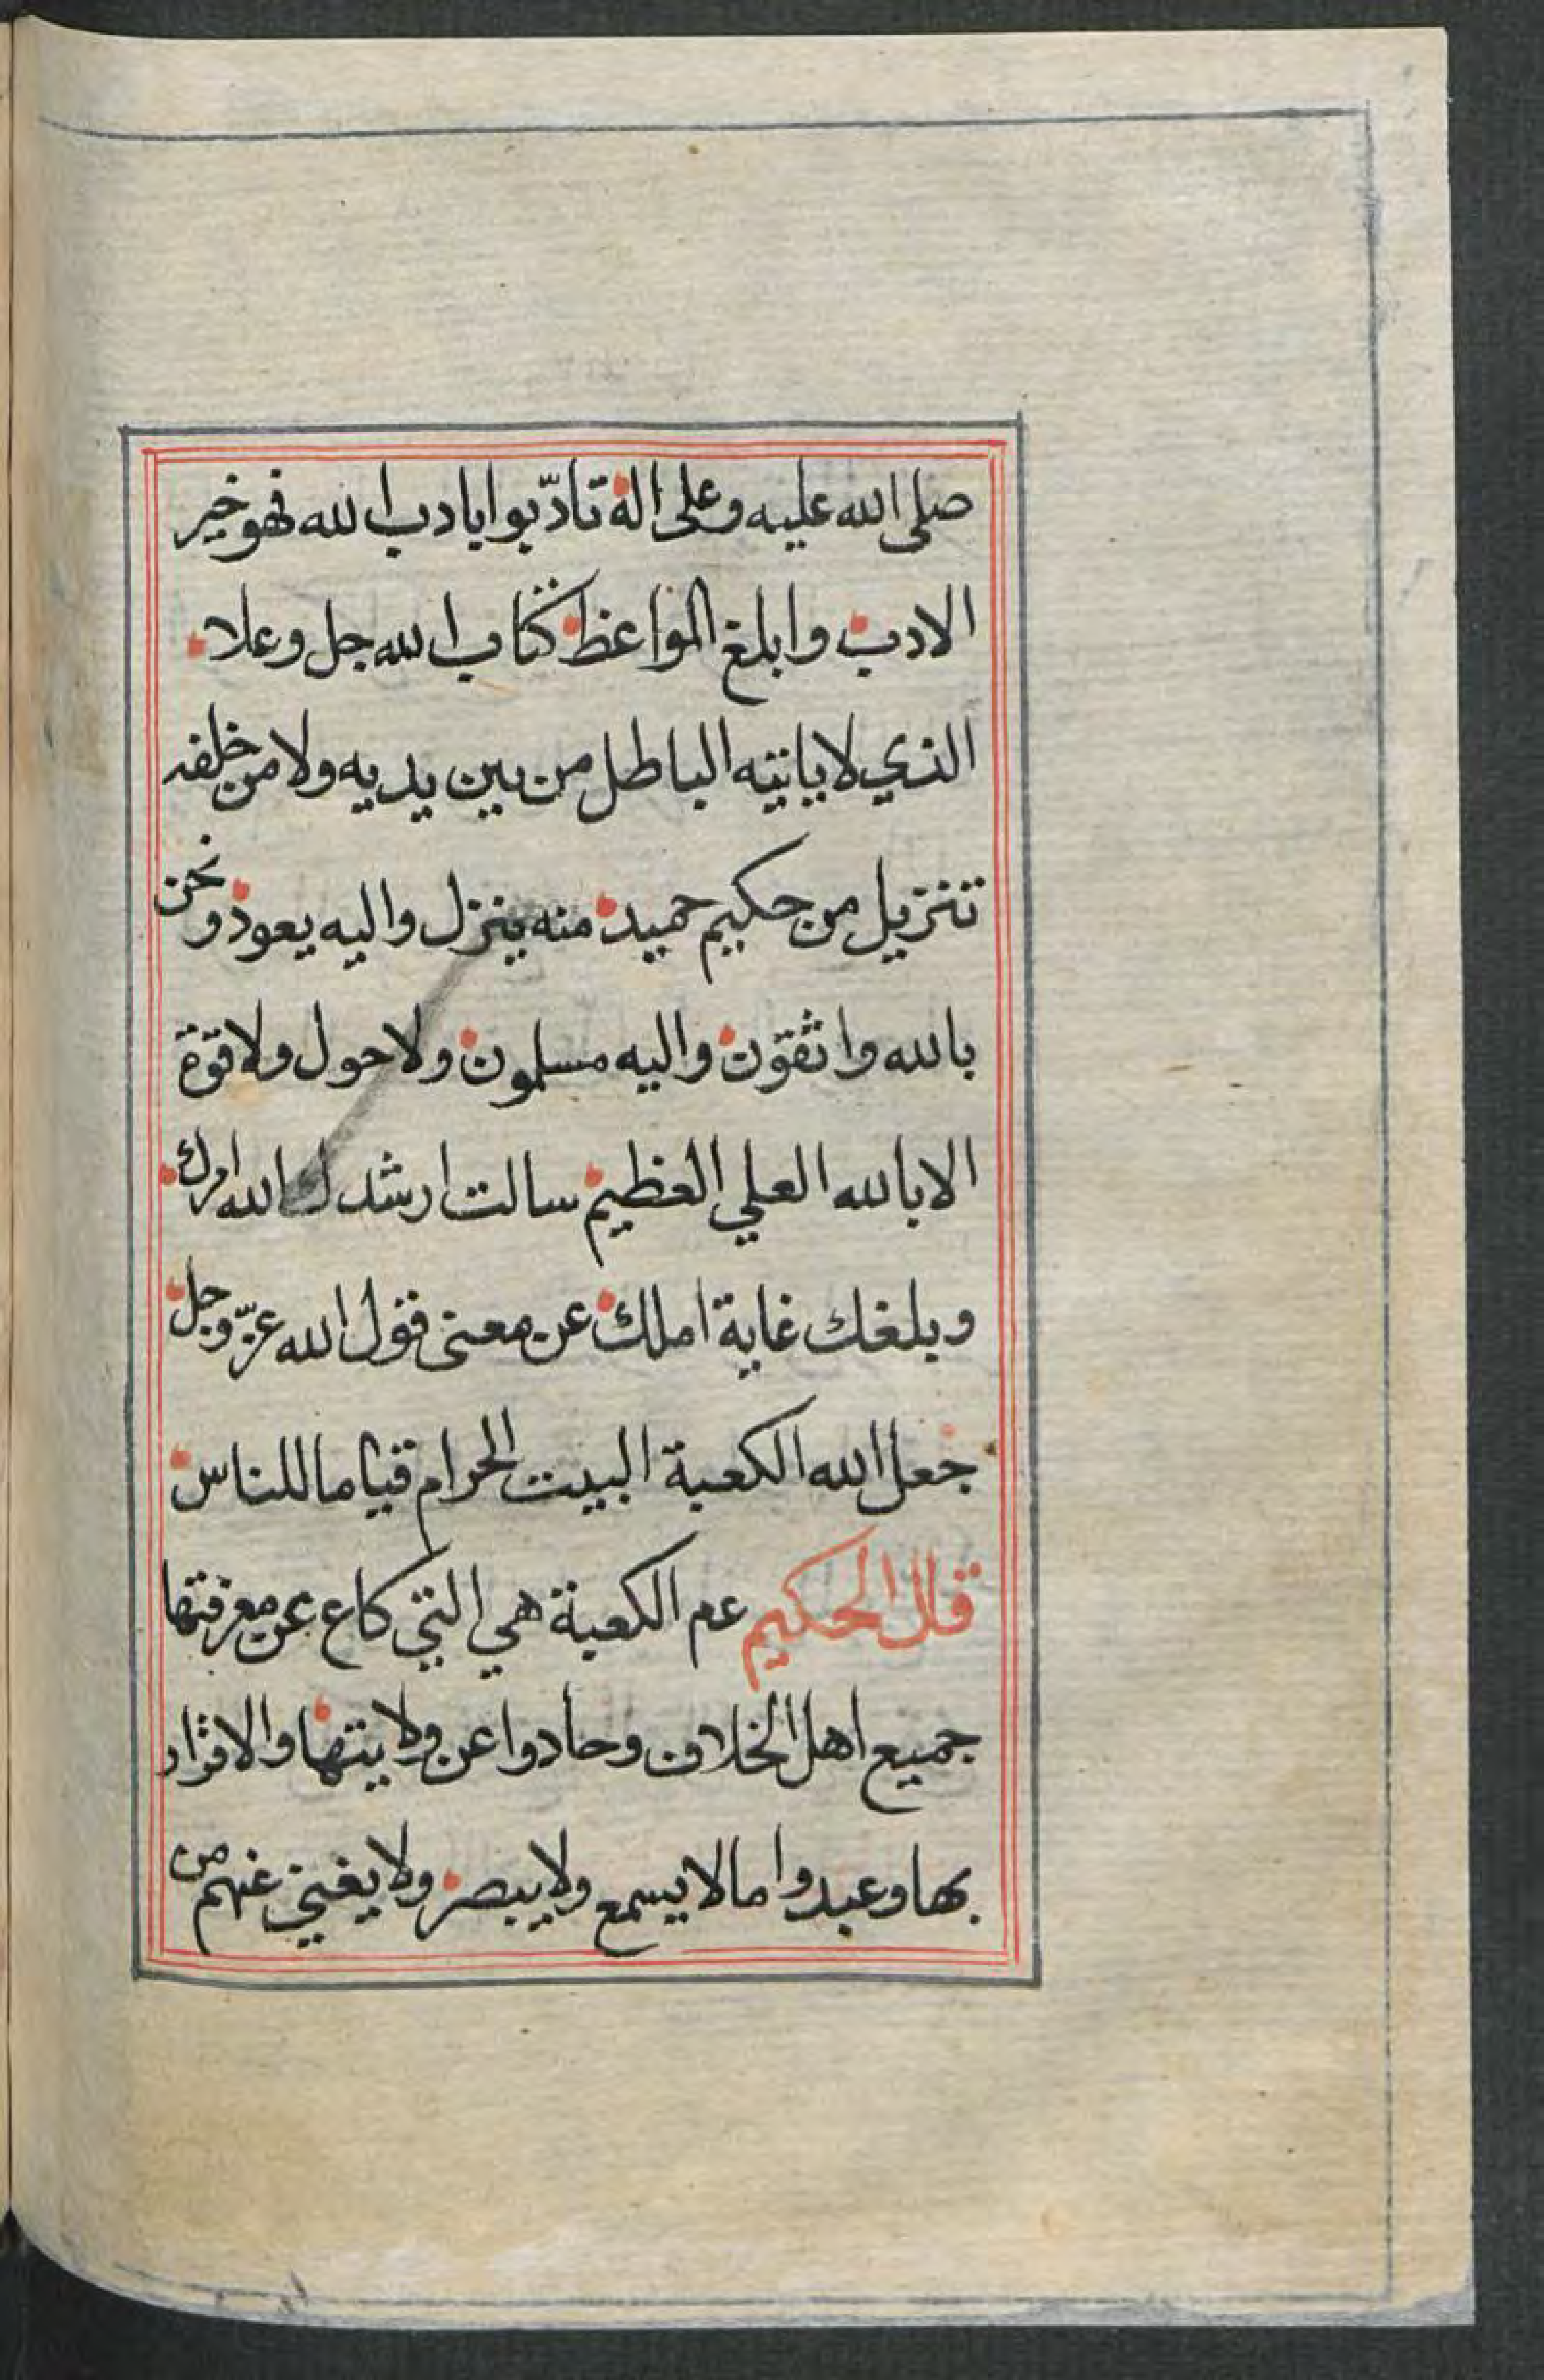 صلى الله عليه وعلى اله تادّبوا بادب الله فهو خير
الادب وابلغ المواعظ كتاب الله جل وعلا
الذي لا ياتيه الباطل من بين يديه ولا من خلفه
تنزيل من حكيم حميد منه ينزل واليه يعود ونحن
بالله واثقون واليه مسلمون ولا حول ولا قوة
الا بالله العلي العظيم سالت ارشدك الله امرك
وبلغك غاية املك عن معنى قول الله عزّ وجل
جعل الله الكعبة البيت الحرام قياما للناس
قال الحكيم عم الكعبة هي التي كاع عن معرفتها
جميع اهل الخلاف وحادوا عن ولايتها والاقرار
بها وعبدوا ما لا يسمع ولا يبصر ولا يغني عنهم من